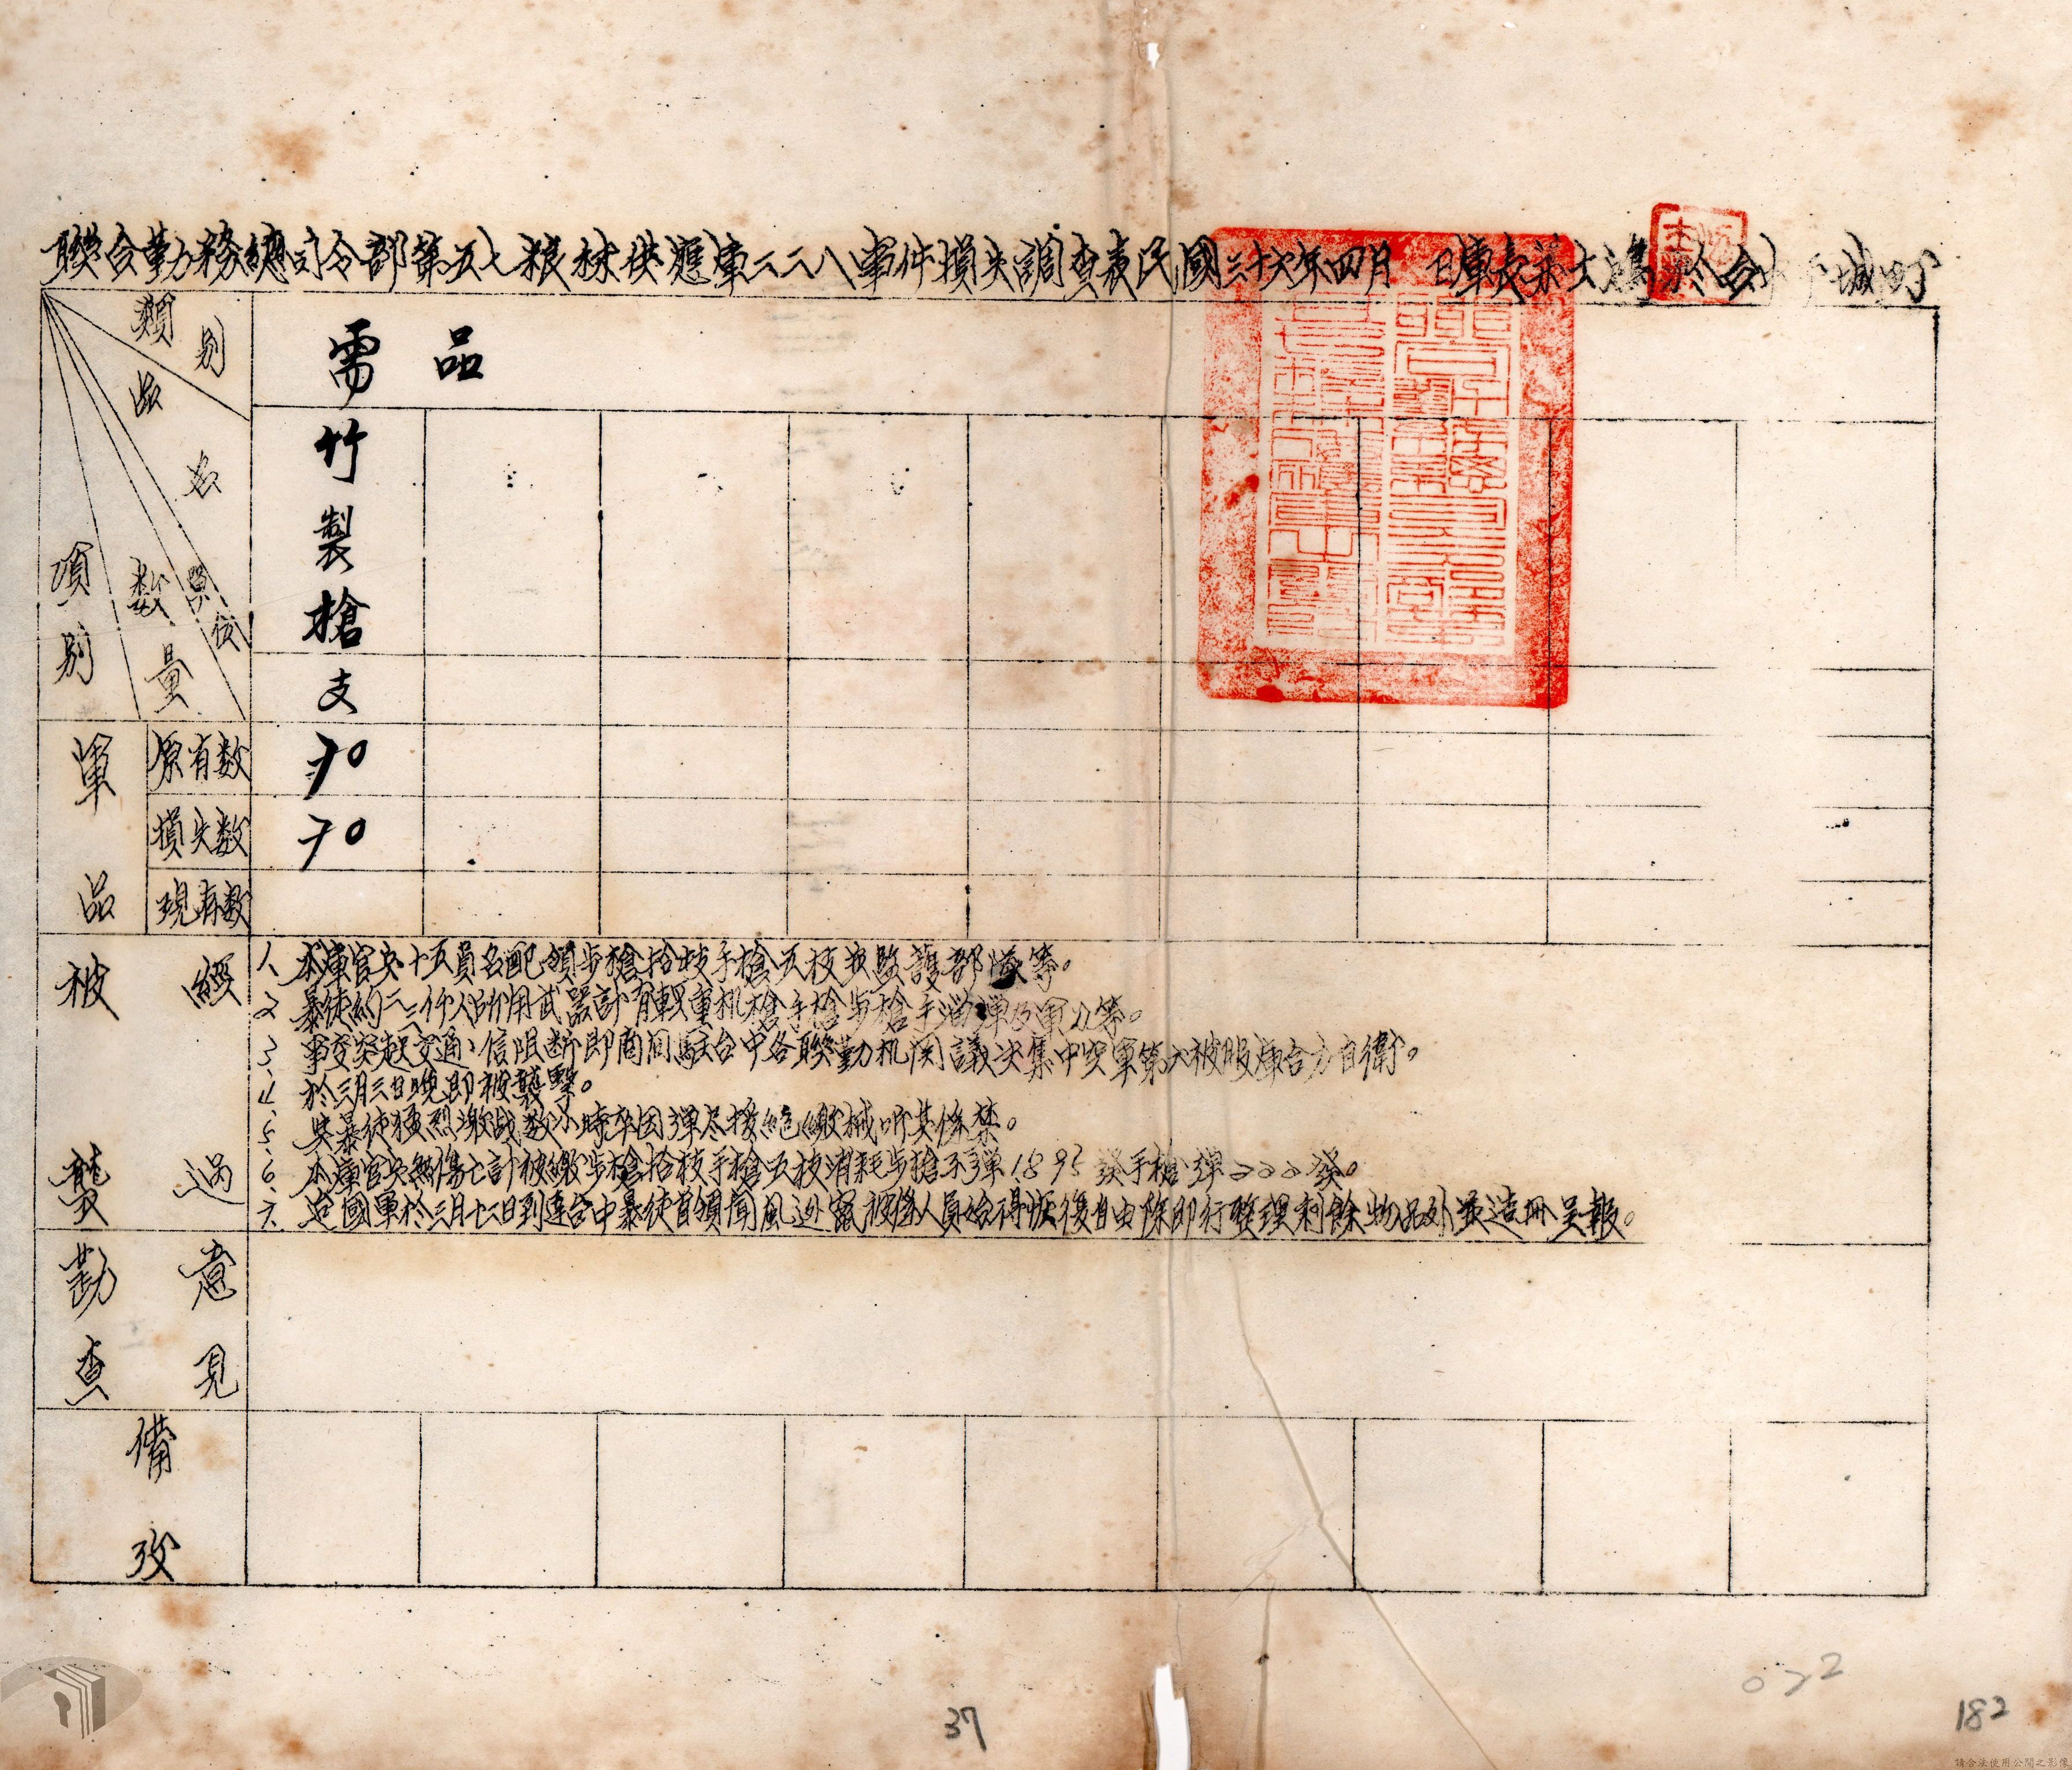 聯合勤務總司令部第五七粮秣供應庫二二八事件損失調查表民國三十六年四月 日庫長 於台 城町
類別
品名
單位
數量
項別
需品
竹製槍
支
70
70
軍品
原有数
損失数
現有数
被襲經過
1、本庫官兵十五員名配領步槍拾枝手槍五枝 監護部隊等。
2、暴徒約二三仟人所用武器計有輕重机槍手槍步槍手溜弹及軍刀等。
3、事变突起交通、信阻断即商同駐台中各聯勤机関議决集中空軍第六被服庫合力自衛。
4、於三月三日晚即被襲擊。
5、與暴徒猛烈激战数小時卒因弹尽援絕繳械听其係禁。
6、本庫官兵無傷亡計被繳步槍拾枝手槍五枝消耗步槍子弹1895發手槍弹200發。
7、迨國軍於三月十三日到達台中暴徒首領聞風逃竄被俘人員始得恢復自由除即行整理剩餘物品外並造冊呈報。
勘查意見
備攷
37
022
182
請合法使用公開之影像